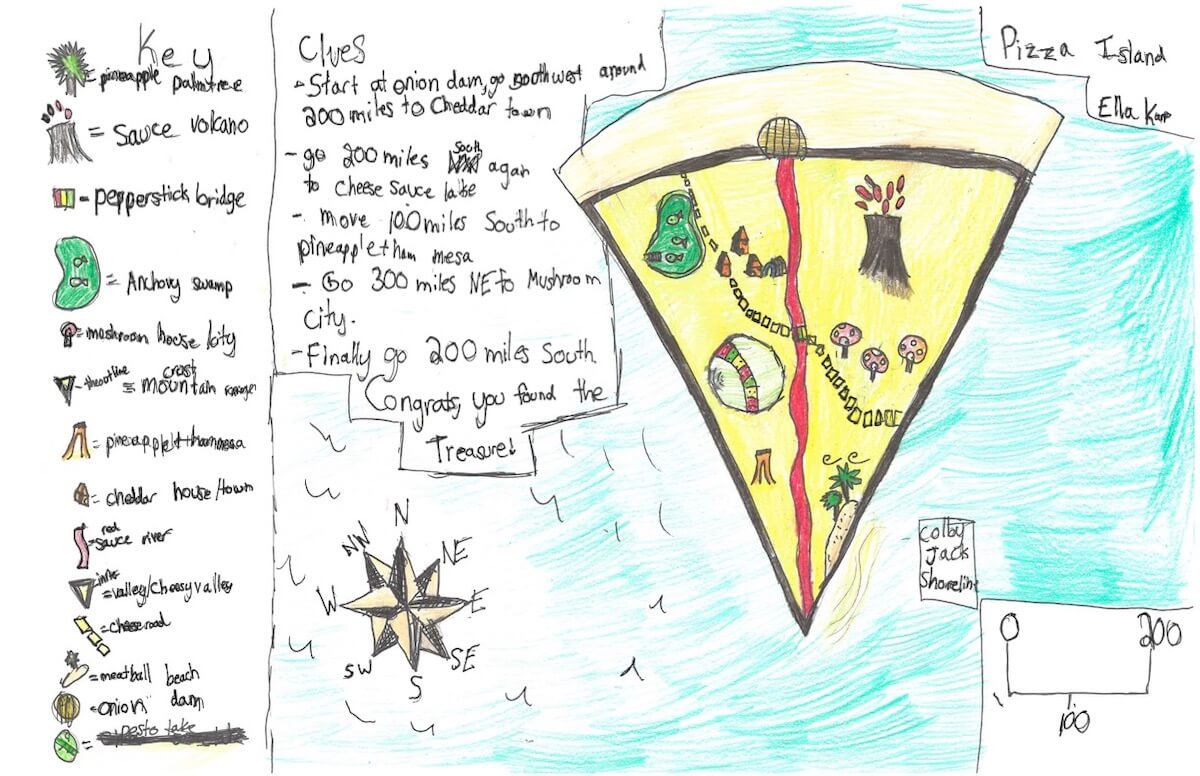 Key
= pineapple palmtree
= Sauce volcano
= pepperstick bridge
= Anchovy swamp
= mushroom house/city
= the outline crost mountain range
= pineapplethammesa
= cheddar house/town
= red sauce river
= valley/Cheesy valley
= cheese road
= meatball beach
= onion dam
=
Clues
- Start at onion dam, go southwest around
200 miles to Cheddar town
- go 200 miles South again
to cheese sauce lake
- move 100 miles South to
pineapple ham mesa
- Go 300 miles NE to Mushroom
City.
- Finally go 200 miles South
Congrats, you found the
Treasure!
N
NE
E
SE
S
SW
W
NW
Pizza Island
Ella Karp
Colby
Jack
Shoreline
0 200
100